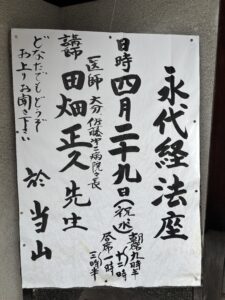 永代経法座
日時 四月二十九日(祝水)
朝席九時半
十二時
昼席一時
三時半
医師 大分 佐藤第二病院々長
講師 田畑正久先生
於当山
どなたでもどうぞ
お上りお聞き下さい